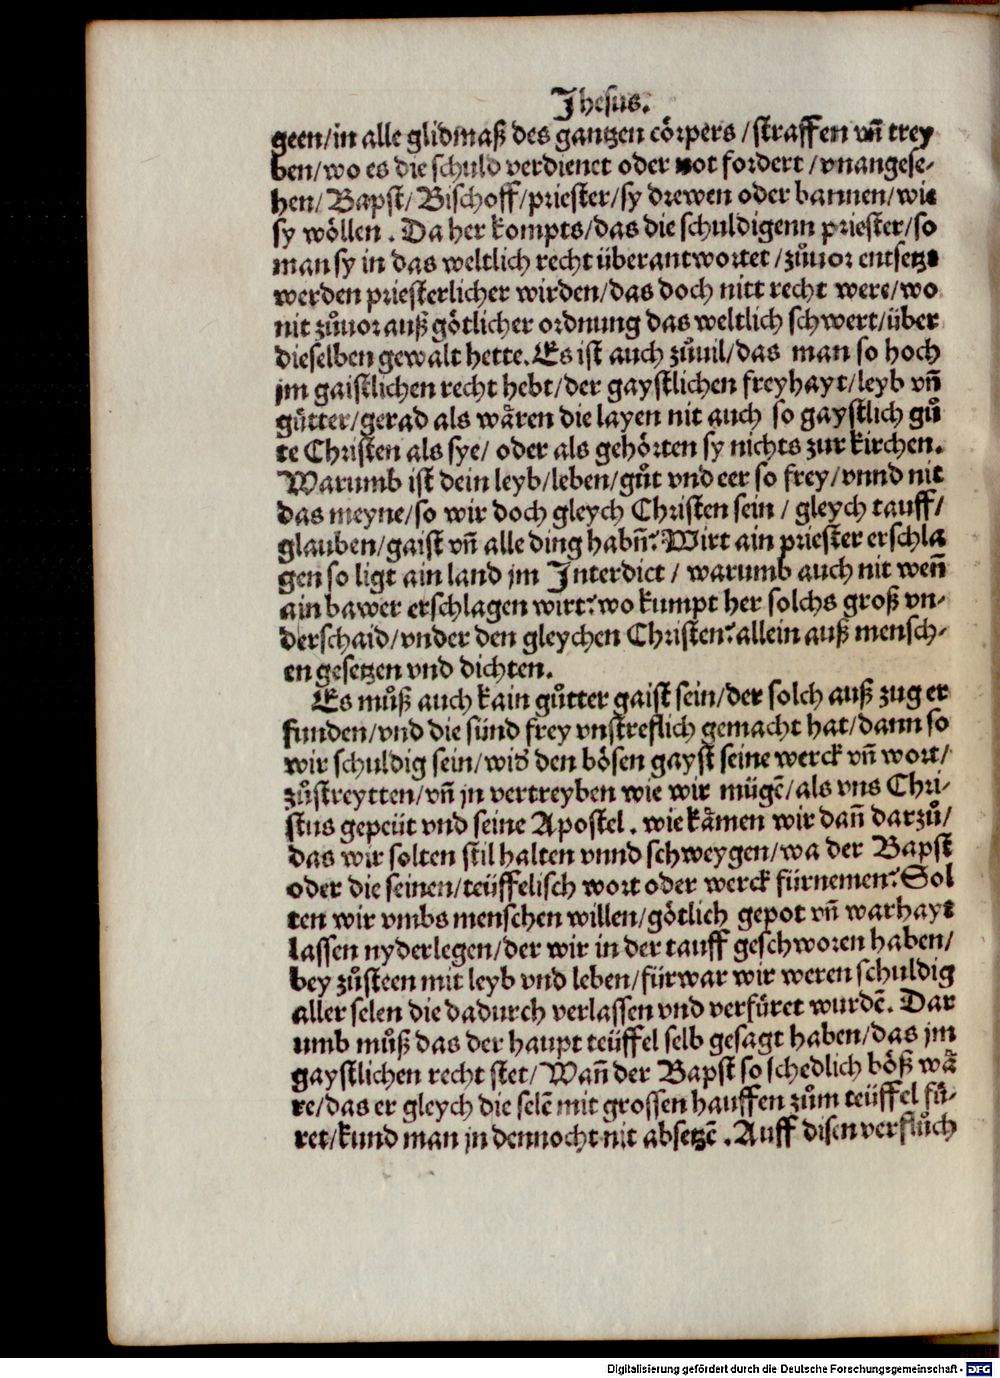 Jhesus.
geen/in alle glidmaß des gantzen cörpers/straffen vñ trey
ben/wo es die schuld verdienet oder not fordert/vnangese-
hen/Bapst/Bischoff/priester/sy drewen oder bannen/wie
sy wöllen. Da her kompts/das die schuldigenn priester/so
man sy in das weltlich recht überantwortet/zůuor entsetzt
werden priesterlicher wirden/das doch nitt recht were/wo
nit zůuor auß götlicher ordnung das weltlich schwert/über
dieselben gewalt hette. Es ist auch zůuil/das man so hoch
jm gaistlichen recht hebt/der gaystlichen freyhayt/leyb vñ
gůtter/gerad als wåren die layen nit auch so gaystlich gů
te Christen als sye/oder als gehörten sy nichts zur kirchen.
Warumb ist dein leyb/leben/gůt vnd eer so frey/vnnd nit
das meyne/so wir doch gleych Christen sein/gleych tauff/
glauben/gaist vñ alle ding habñ? Wirt ain priester erschla
gen so ligt ain land jm Interdict/warumb auch nit weñ
ain bawer erschlagen wirt? wo kumpt her solchs groß vn-
derschaid/vnder den gleychen Christen? allein auß mensch-
en gesetzen vnd dichten.
Es můß auch kain gůtter gaist sein/der solch auß zug er
funden/vnd die sünd frey vnstreflich gemacht hat/dann so
wir schuldig sein/wid̕ den bösen gayst seine werck vñ wort/
zůstreytten/vñ jn vertreyben wie wir mügẽ/als vns Chri-
stus gepeüt vnd seine Apostel. wie kåmen wir dañ darzů/
das wir solten stil halten vnnd schweygen/wa der Bapst
oder die seinen/teüffelisch wort oder werck fürnemen? Sol
ten wir vmbs menschen willen/götlich gepot vñ warhayt
lassen nyderlegen/der wir in der tauff geschworen haben/
bey zůsteen mit leyb vnd leben/fürwar wir weren schuldig
aller selen die dadurch verlassen vnd verfüret wurdẽ. Dar
umb můß das der haupt teüffel selb gesagt haben/das jm
gaystlichen recht stet/Wañ der Bapst so schedlich böß wå
re/das er gleych die selẽ mit grossen hauffen zům teüffel fü-
ret/kund man jn dennocht nit absetzẽ. Auff disen verflůch
Digitalisierung gefördert durch die Deutsche Forschungsgemeinschaft - DFG